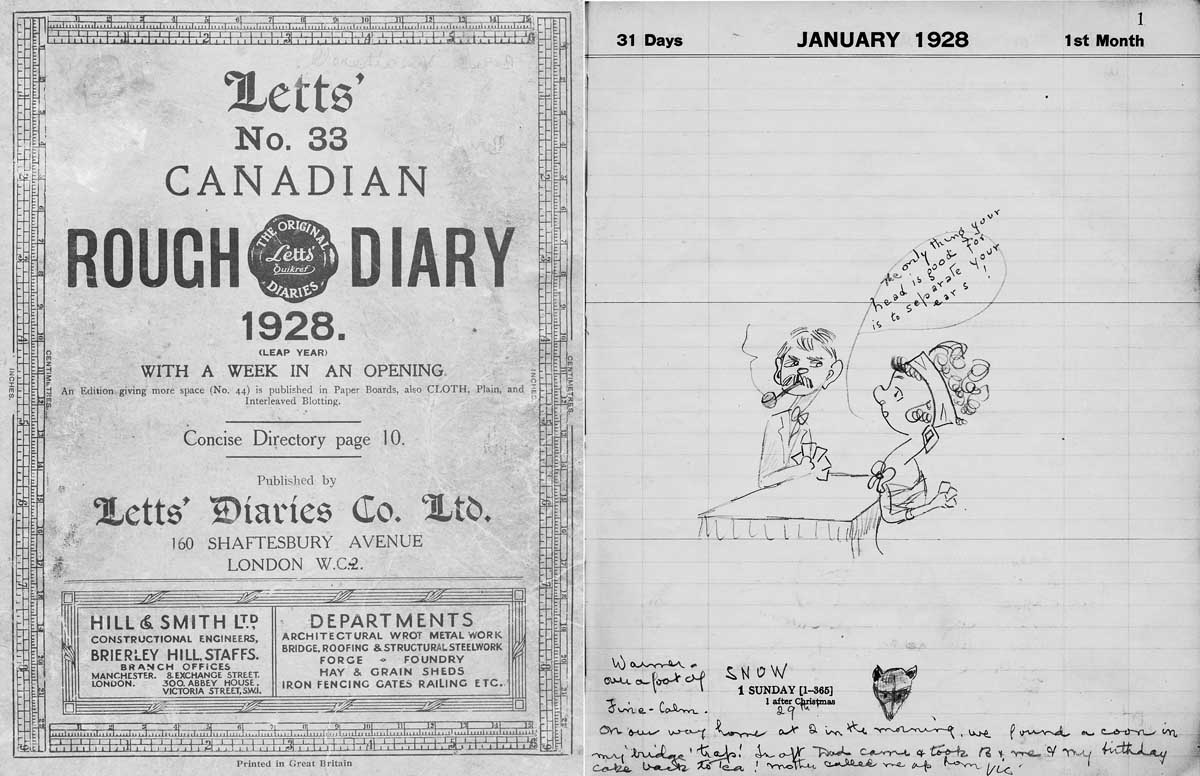 Letts'
No. 33
CANADIAN
ROUGH DIARY
THE ORIGINAL
Letts'
Quikref
DIARIES
1928.
(LEAP YEAR)
WITH A WEEK IN AN OPENING.
An Edition giving more space (No. 44) is published in Paper Boards, also CLOTH, Plain, and
Interleaved Blotting.
Concise Directory page 10.
Published by
Letts' Diaries Co. Ltd.
160 SHAFTESBURY AVENUE
LONDON W.C.2.
HILL & SMITH LTD,
CONSTRUCTIONAL ENGINEERS,
BRIERLEY HILL, STAFFS.
BRANCH OFFICES
MANCHESTER. 8, EXCHANGE STREET.
LONDON. 300, ABBEY HOUSE,
VICTORIA STREET, S.W.1.
DEPARTMENTS
ARCHITECTURAL WROT METAL WORK
BRIDGE, ROOFING & STRUCTURAL STEELWORK
FORGE • FOUNDRY
HAY & GRAIN SHEDS
IRON FENCING GATES RAILING ETC.
INCHES.
CENTIMETRES
INCHES.
CENTIMETRES
Printed in Great Britain
1
31 Days
JANUARY 1928
1st Month
The only thing your
head is good for
is to separate your
ears !
Warmer -
over a foot of SNOW
1 SUNDAY [1–365]
1 after Christmas
Fine - Calm. 29
On our way home at 2 in the morning, we found a coon in
my 'bridge' trap! In aft Dad came & took B & me & my birthday
cake back to tea! Mother called me up from